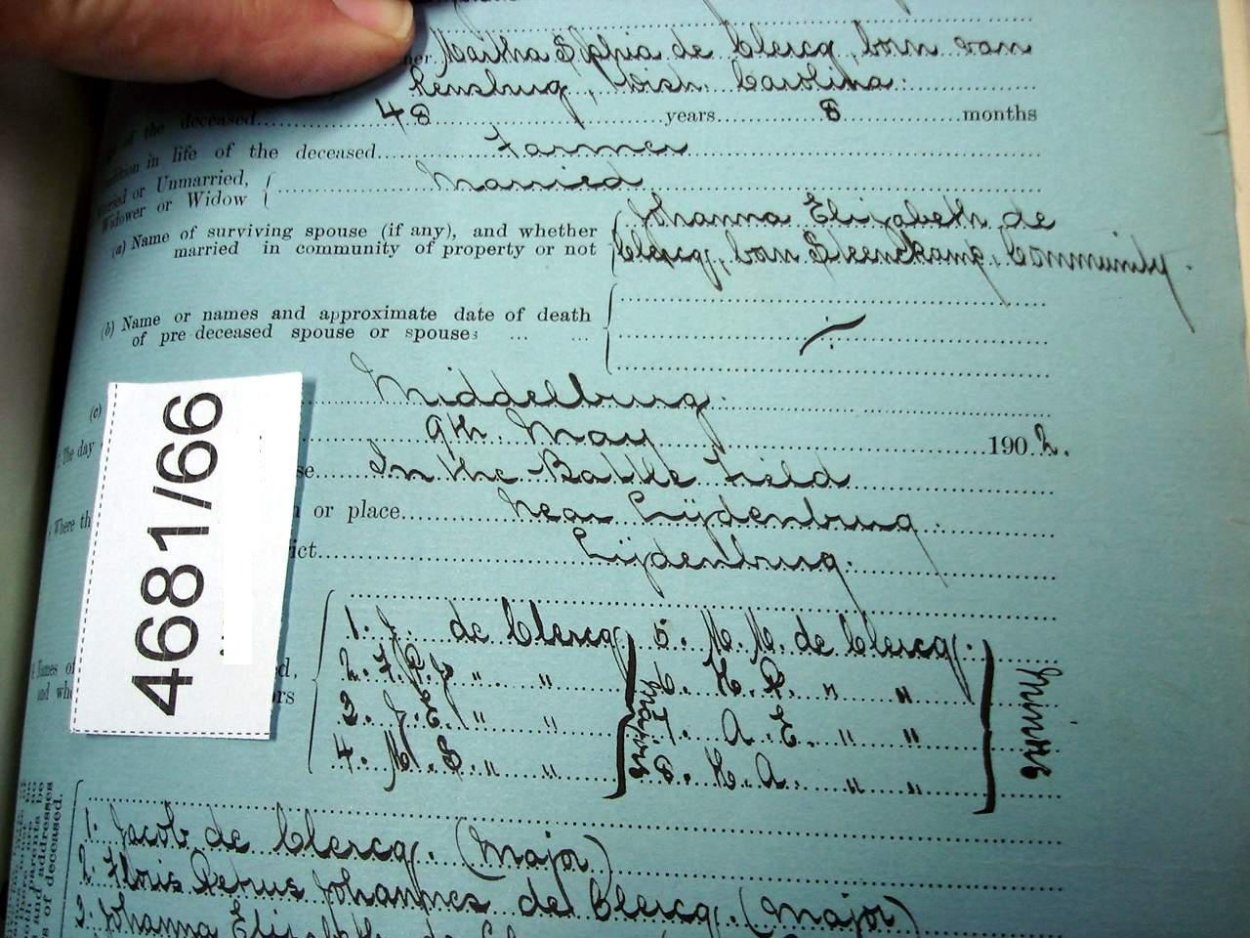 Martha Sophia de Clercq, born van
Rensburg, Distr. Carolina.
of the deceased 48 years 8 months
Condition in life of the deceased Farmer
Married or Unmarried, Married
Widower or Widow
(a) Name of surviving spouse (if any), and whether Johanna Elizabeth de
married in community of property or not Clercq, born Steenekamp, Community.
(b) Name or names and approximate date of death
of pre deceased spouse or spouses ... ...
(c) Middelburg.
The day 9th. May 1902.
se In the Battle Field
Where th or place Near Lÿdenburg.
ict Lÿdenburg.
4681/66
1. J. de Clercq 5. M. M. de Clercq.
2. F. P. J " " 6. H. P. " "
3. J. E. " " 7. A. E. " "
4. M. S. " " 8. H. A. " "
Majors
Minors
Names of
and whe
d,
ors
1. Jacob de Clercq. (Major)
2. Floris Petrus Johannes de Clercq. (Major)
3. Johanna Elizabeth de
and addresses
of deceased.